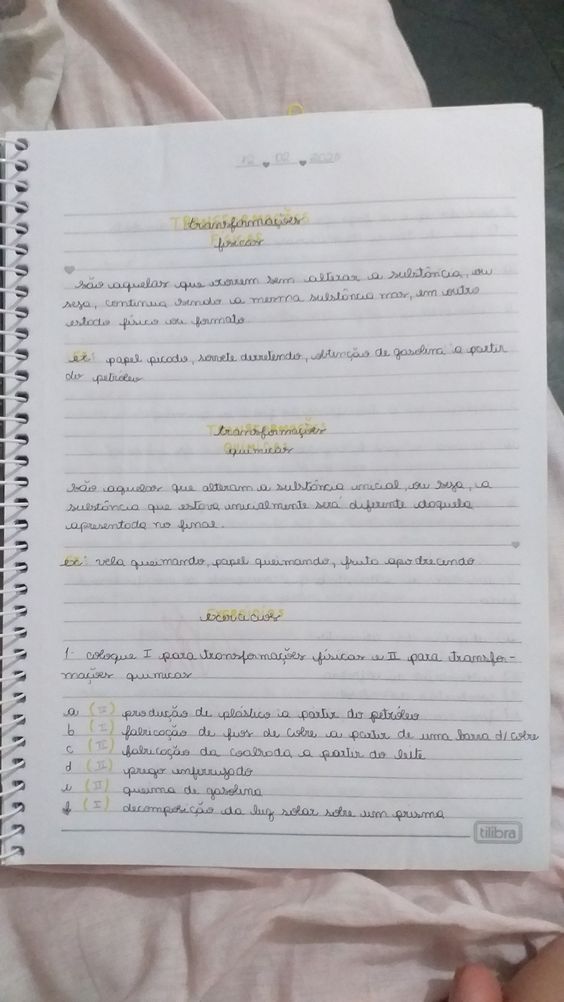 12 . 02 . 2020
transformações
físicas
são aquelas que ocorrem sem alterar a substância, ou
seja, continua sendo a mesma substância mas, em outro
estado físico ou formato.
ex: papel picado, sorvete derretendo, obtenção de gasolina a partir
do petróleo
transformações
químicas
são aquelas que alteram a substância inicial, ou seja, a
substância que estava inicialmente será diferente daquela
apresentada no final.
ex: vela queimando, papel queimando, fruta apodrecendo
exercícios
1- coloque I para transformações físicas e II para transfor-
mações químicas
a (II) produção de plástico a partir do petróleo
b (I) fabricação de fios de cobre a partir de uma barra d/ cobre
c (II) fabricação da coalhada a partir do leite
d (II) prego enferrujado
e (II) queima de gasolina
f (I) decomposição da luz solar sobre um prisma
tilibra